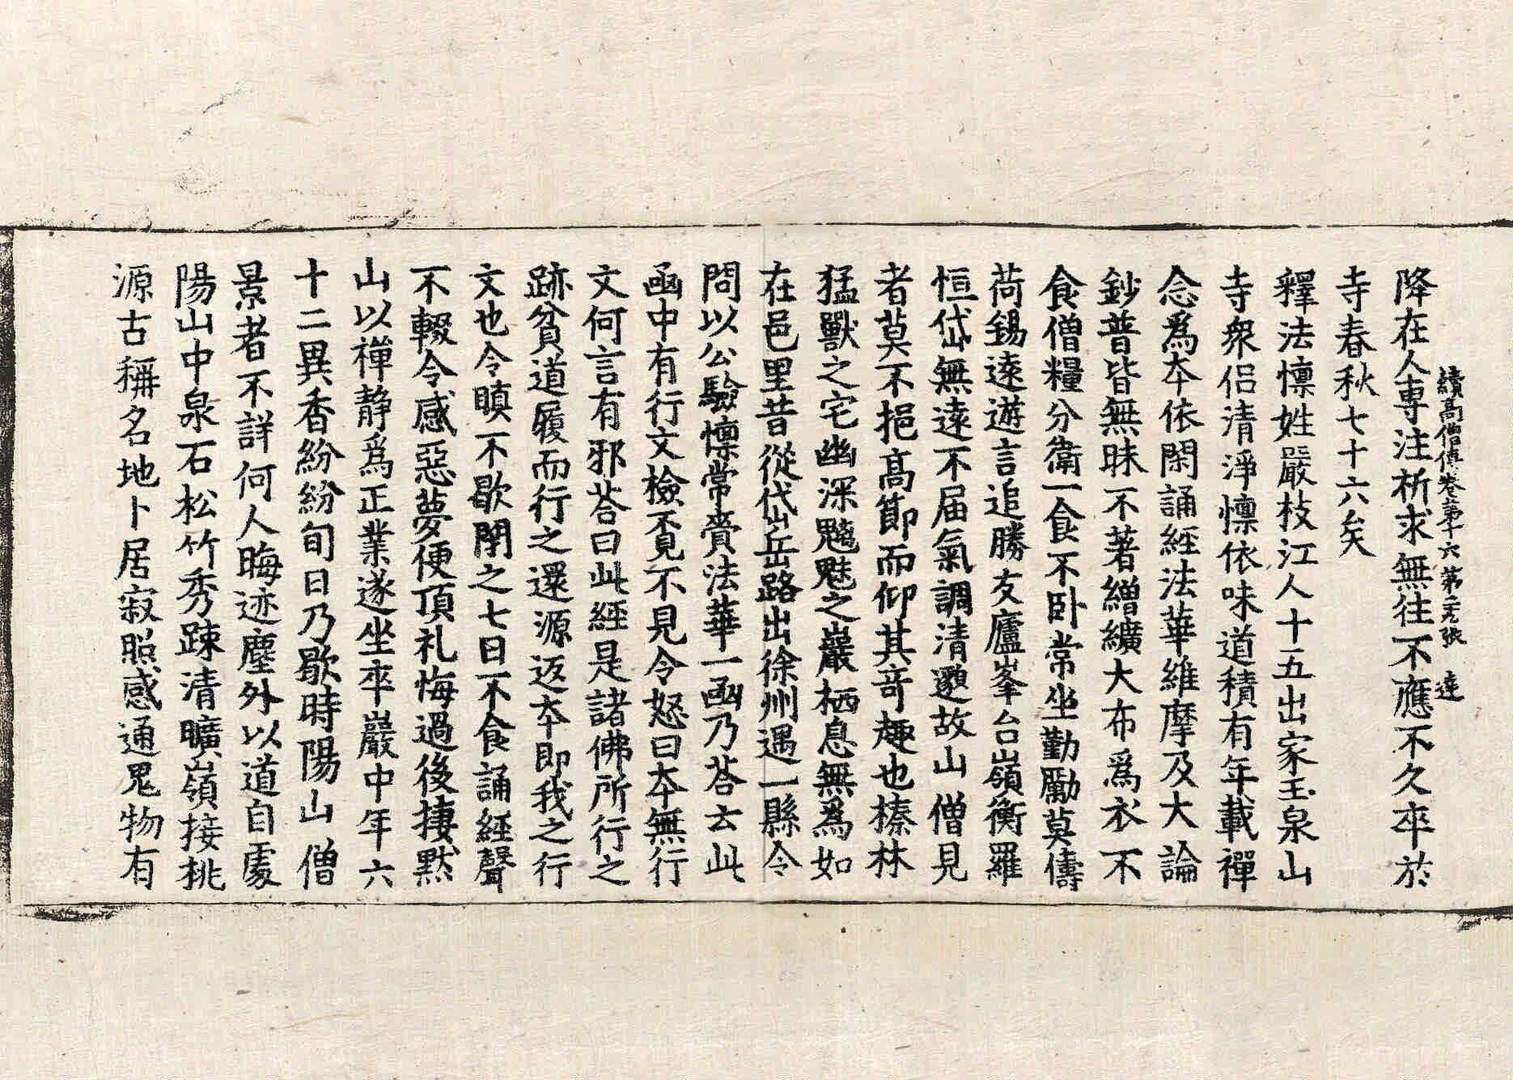 續高僧傳卷第十六 第二張 達
降在人專注祈求無往不應不久卒於
寺春秋七十六矣
釋法懍姓嚴枝江人十五出家玉泉山
寺衆侶清淨懍依味道積有年載禪
念爲夲依閑誦經法華維摩及大論
鈔普皆無昧不著繒纊大布爲衣不
食僧糧分衛一食不卧常坐勤勵莫儔
荷錫遠遊言追勝友廬峯台嶺衡羅
恒岱無遠不届氣調清邈故山僧見
者莫不挹高節而仰其奇趣也榛林
猛獸之宅幽深魑魅之巖栖息無爲如
在邑里昔從岱岳路出徐州遇一縣令
問以公驗懍常賷法華一函乃荅云此
函中有行文檢覔不見令怒曰夲無行
文何言有邪荅曰此經是諸佛所行之
跡貧道履而行之還源返夲即我之行
文也令瞋不歇閇之七日不食誦經聲
不輟令感惡夢便頂礼悔過後捿黙
山以禪静爲正業遂坐卒巖中年六
十二異香紛紛旬日乃歇時陽山僧
景者不詳何人晦迹塵外以道自處
陽山中泉石松竹秀踈清曠嶺接桃
源古稱名地卜居寂照感通鬼物有